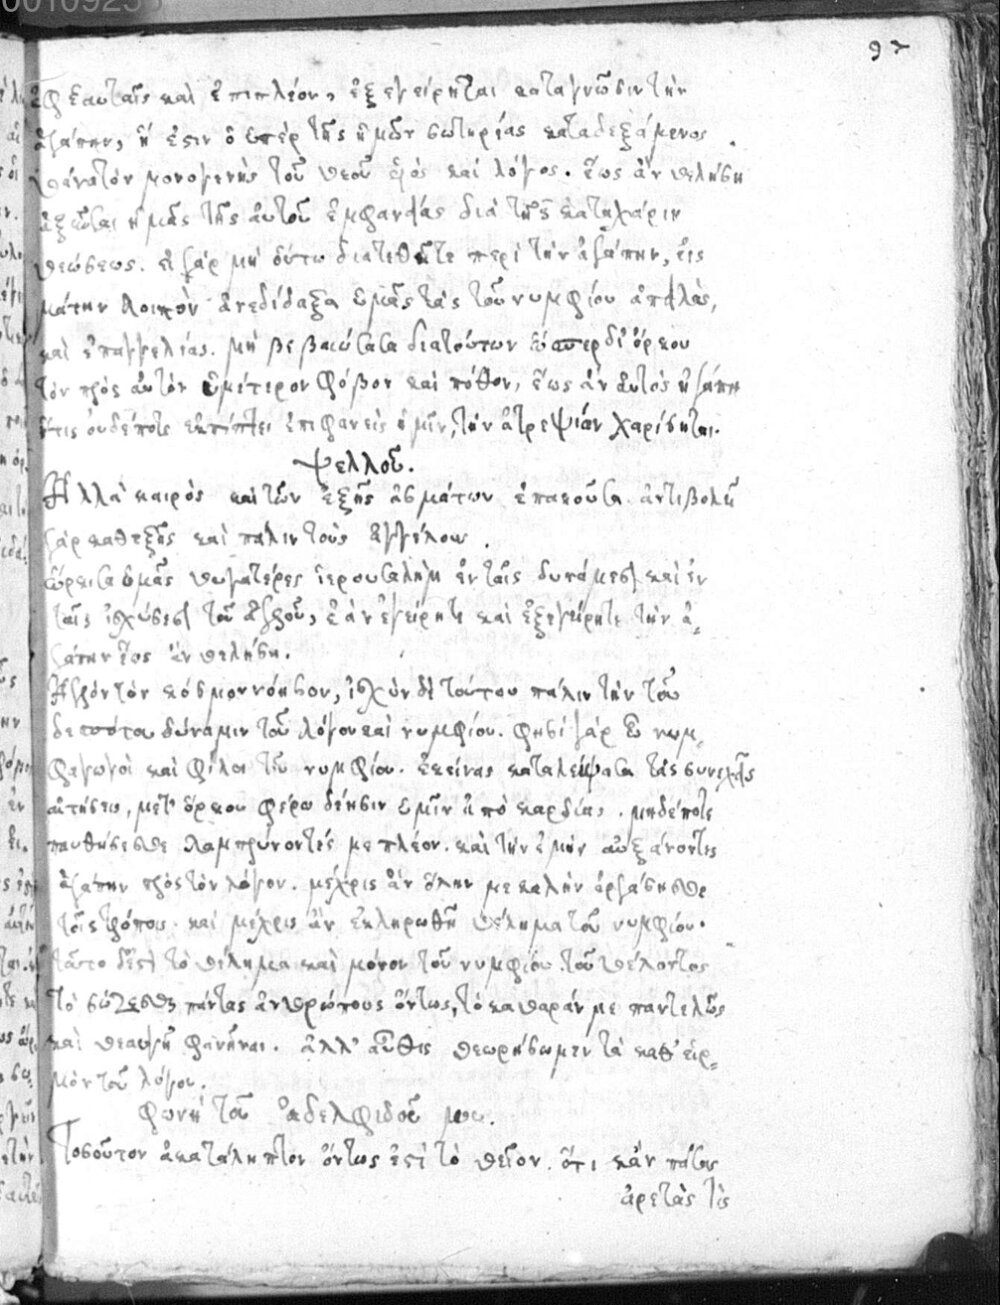 0010925
97
ἐφ ἑαυταῖς καὶ ἐπιπλέον, ἐξεγείρηται κατάγνωσιν τὴν
ἀγάπην, ἥ ἐστιν ὁ ὑπὲρ τῆς ἡμῶν σωτηρίας καταδεξάμενος
θάνατον μονογενὴς τοῦ θεοῦ υἱός καὶ λόγος. ἕως ἂν θελήση
ἀξιῶσαι ἡμᾶς τῆς αὐτοῦ ἐμφανείας διὰ τῆς κατὰ χάριν
θεώσεως. εἰ γὰρ μὴ οὕτω διατεθῆτε περὶ τὴν ἀγάπην, εἰς
μάτην λοιπὸν ἀνεδίδαξα ὑμᾶς τὰς τοῦ νυμφίου ἀπειλὰς,
καὶ ἐπαγγελίας. μὴ βεβαιώσασα διατούτων ὥσπερ δι' ὅρκου
τὸν πρὸς αὐτὸν ὑμέτερον φόβον καὶ πόθον, ἕως ἂν αὐτὸς ἡ ἀγάπη
ἥτις οὐδέποτε ἐκπίπτει ἐπιφανεὶς ὑμῖν, τὴν ἀτρεψίαν χαρίσηται.
ψελλοῦ.
Ἀλλὰ καιρὸς καὶ τῶν ἑξῆς ἀσμάτων ἐπακοῦσαι ἀντιβολεῖ
γὰρ καθεξῆς καὶ πάλιν τοὺς ἀγγέλους.
ὥρκισα ὑμᾶς θυγατέρες ἱερουσαλὴμ ἐν ταῖς δυνάμεσι καὶ ἐν
ταῖς ἰσχύσεσι τοῦ ἀγροῦ, ἐὰν ἐγείρητε καὶ ἐξεγείρητε τὴν ἀ
γάπην ἕως ἂν θελήση.
Ἀγρὸν τὸν κόσμον νόησον, ἰσχὺν δὲ τούτου πάλιν τὴν τοῦ
δεσπότου δύναμιν τοῦ λόγου καὶ νυμφίου. φησὶ γὰρ ὦ νυμ
φαγωγοὶ καὶ φίλοι τοῦ νυμφίου. ἐκείνας καταλείψασα τὰς συνεχεῖς
αἰτήσεις, μεθ' ὅρκου φέρω δέησιν ὑμῖν ἀπὸ καρδίας. μηδέποτε
παυθήσεσθε λαμπρύνοντές με πλέον. καὶ τὴν ἐμὴν αὐξάνοντες
ἀγάπην πρὸς τὸν λόγον. μέχρις ἂν ὅλην με καλὴν ἐργάσησθε
τοῖς τρόποις. καὶ μέχρις ἂν ἐκπληρωθῆ θέλημα τοῦ νυμφίου.
τοῦτο δ' ἐστὶ τὸ θέλημα καὶ μόνον τοῦ νυμφίου τοῦ θέλοντος
τὸ σώζεσθαι πάντας ἀνθρώπους ὄντως, τὸ καθαράν με παντελῶς
καὶ θεαυγῆ φανῆναι. ἀλλ' αὖθις θεωρήσωμεν τὰ καθ' εἱρ
μὸν τοῦ λόγου.
φωνὴ τοῦ ἀδελφιδοῦ μου.
Τοσοῦτον ἀκατάληπτον ὄντως ἐστὶ τὸ θεῖον. ὅτι κἂν πάσας
ἀρετὰς τὶς